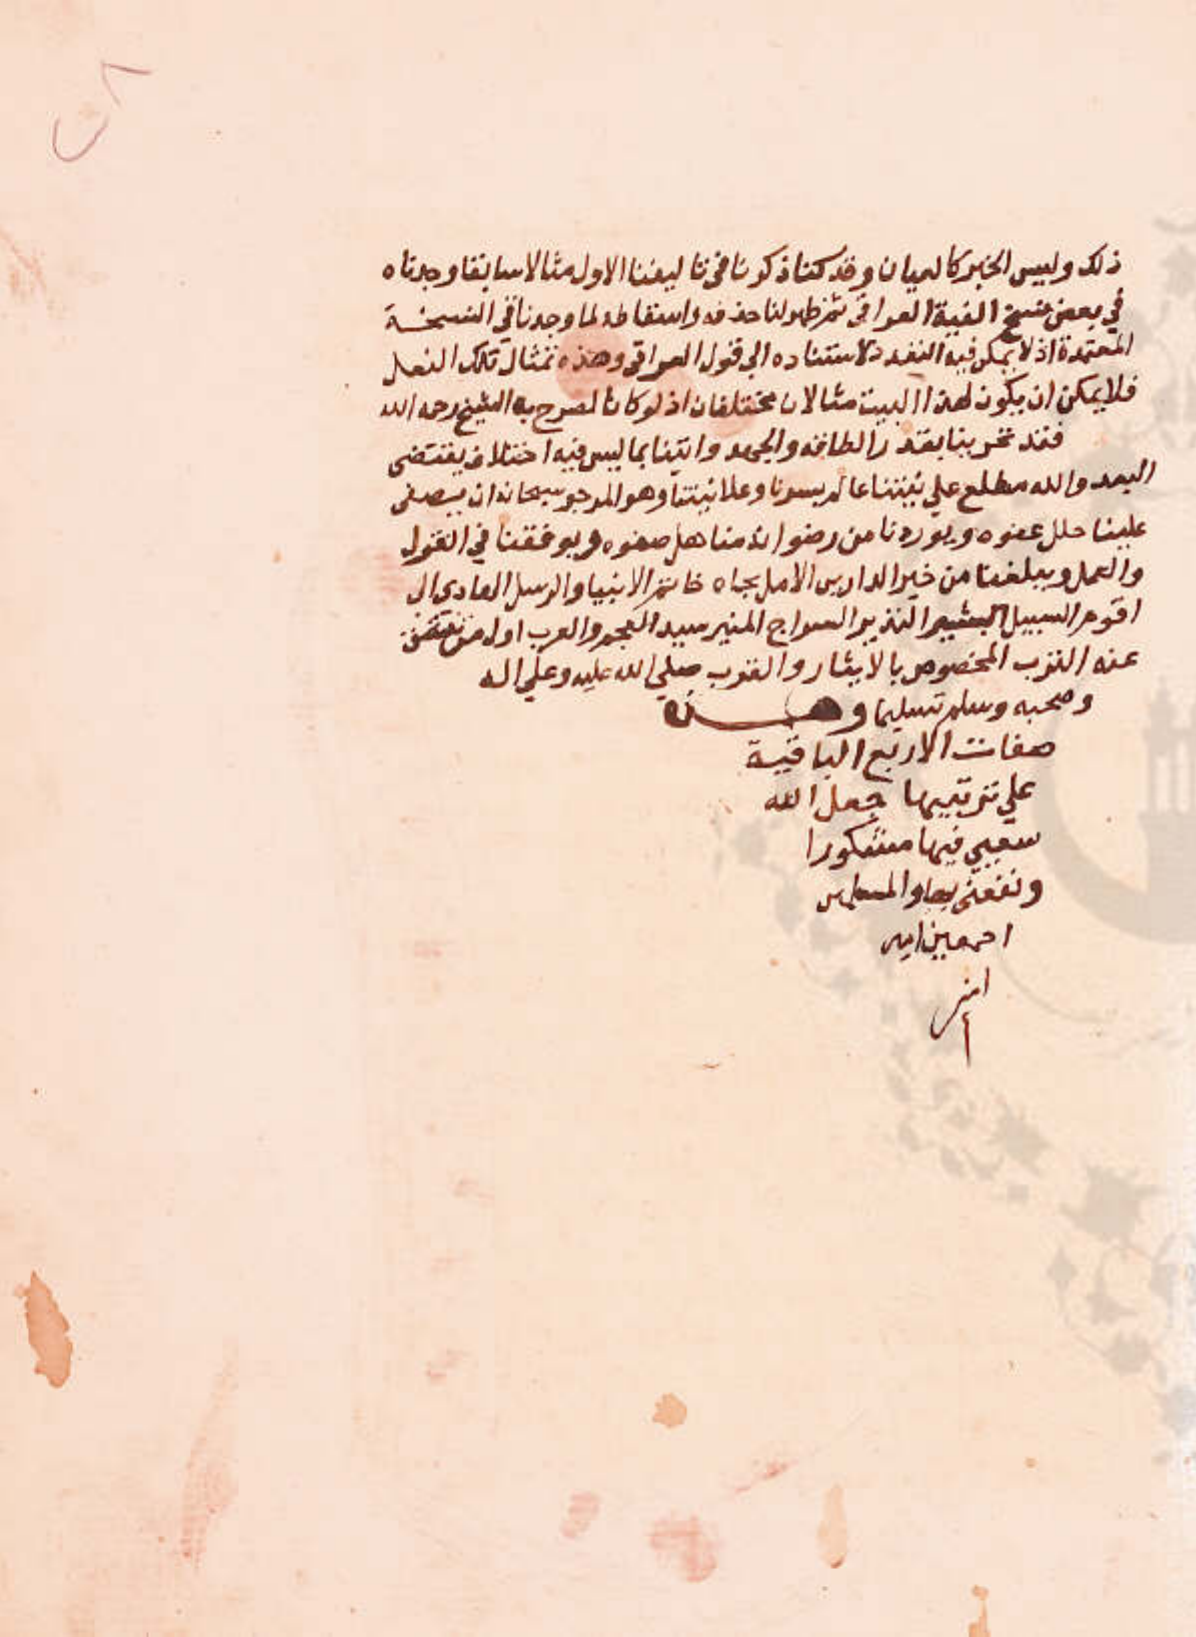 ٢٨
ذلك وليس الخبر كالعيان وقد كنا ذكرنا في تاليفنا الاول مثالا سابقا وجدناه
في بعض نسخ الفية العراقي ثم ظهر لنا حذفه واسقاطه لما وجدنا في النسخة
المعتمدة اذ لا يمكن فيه التعدد لاستناده الى قول العراقي وهذه تمثال تلك النعل
فلا يمكن ان يكون لهذا البيت مثالان مختلفان اذ لو كانا لصرح به الشيخ رحمه الله
فقد تحرينا بقدر الطاقة والجهد واتينا بما ليس فيه اختلاف يقتضي
البعد والله مطلع علي نيتنا عالم بسرنا وعلانيتنا وهو المرجو سبحانه ان يسبغ
علينا حلل عفوه ويوردنا من رضوانه مناهل صفوه ويوفقنا في القول
والعمل ويبلغنا من خير الدارين الامل بجاه خاتم الانبيا والرسل الهادي الى
اقوم السبيل البشير النذير السراج المنير سيد العجم والعرب اول من تنشق
عنه الترب المخصوص بالايثار والقرب صلي الله عليه وعلي اله
وصحبه وسلم تسليما وهذه
صفات الاربع الباقية
علي ترتيبها جعل الله
سعيي فيها مشكورا
ونفعني بها والمسلمين
اجمعين امين
امين